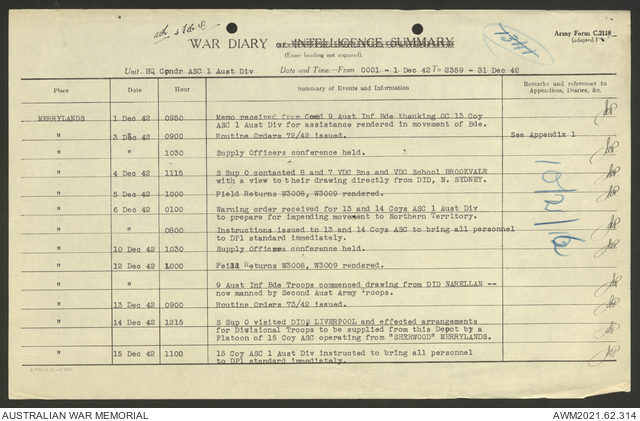 WAR DIARY or INTELLIGENCE SUMMARY
Army Form C.2118
(Erase heading not required).
Unit. HQ Comdr ASC 1 Aust Div Date and Time.—From 0001 - 1 Dec 42 To 2359 - 31 Dec 42
Place Date Hour Summary of Events and Information Remarks and references to
Appendices, Diaries, &c.
MERRYLANDS 1 Dec 42 0950 Memo received from Comd 9 Aust Inf Bde thanking OC 13 Coy
ASC 1 Aust Div for assistance rendered in movement of Bde.
" 3 Dec 42 0900 Routine Orders 72/42 issued. See Appendix 1
1030 Supply Officers conference held.
" 4 Dec 42 1115 S Sup O contacted 8 and 7 VDC Bns and VDC School BROOKVALE
with a view to their drawing directly from DID, N. SYDNEY.
" 5 Dec 42 1000 Field Returns W3008, W3009 rendered.
" 6 Dec 42 0100 Warning order received for 13 and 14 Coys ASC 1 Aust Div
to prepare for impending movement to Northern Territory.
" 0800 Instructions issued to 13 and 14 Coys ASC to bring all personnel
to DP1 standard immediately.
" 10 Dec 42 1030 Supply Officers conference held.
" 12 Dec 42 1000 Feild Returns W3008, W3009 rendered.
" 9 Aust Inf Bde Troops commenced drawing from DID NARELLAN --
now manned by Second Aust Army Troops.
" 13 Dec 42 0900 Routine Orders 73/42 issued.
" 14 Dec 42 1215 S Sup O visited DID LIVERPOOL and effected arrangements
for Divisional Troops to be supplied from this Depot by a
Platoon of 15 Coy ASC operating from "SHERWOOD" MERRYLANDS.
" 15 Dec 42 1100 15 Coy ASC 1 Aust Div instructed to bring all personnel
to DP1 standard immediately.
10/21/16
AUSTRALIAN WAR MEMORIAL AWM2021.62.314